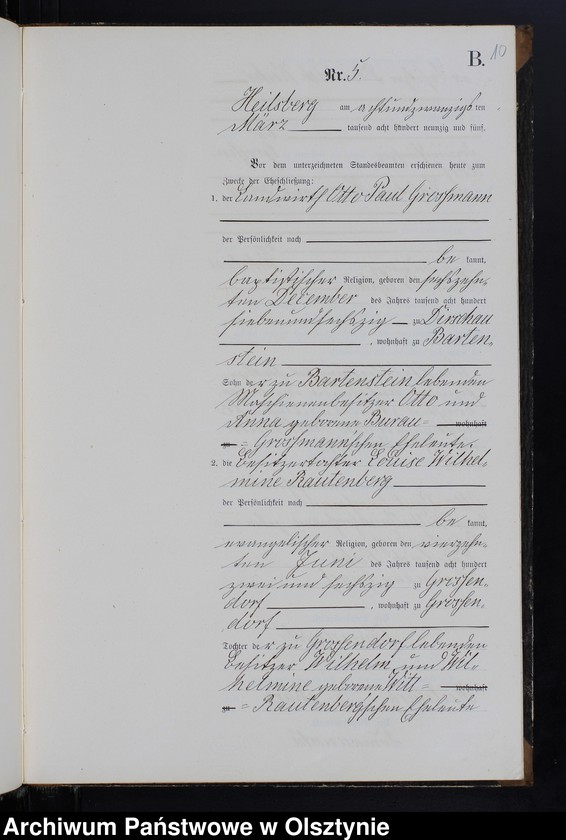 B. 10
Nr. 5.
Heilsberg am achtundzwanzigsten
März tausend acht hundert neunzig und fünf.
Vor dem unterzeichneten Standesbeamten erschienen heute zum
Zwecke der Eheschließung:
1. der Landwirth Otto Paul Grossmann
der Persönlichkeit nach
be kannt,
baptistischer Religion, geboren den sechszehn-
ten December des Jahres tausend acht hundert
siebenundsechszig zu Dirschau
, wohnhaft zu Barten-
stein
Sohn der zu Bartenstein lebenden
Maschienenbesitzer Otto und
Anna geborene Burau= wohnhaft
zu = Grossmann'schen Eheleute.
2. die Besitzertochter Louise Wilhel-
mine Rautenberg
der Persönlichkeit nach
be kannt,
evangelischer Religion, geboren den vierzehn-
ten Juni des Jahres tausend acht hundert
zwei und sechszig zu Grossen-
dorf , wohnhaft zu Grossen-
dorf
Tochter der zu Grossendorf lebenden
Besitzer Wilhelm und Wil-
helmine geborene Witt= wohnhaft
zu = Rautenberg'schen Eheleute
Archiwum Państwowe w Olsztynie